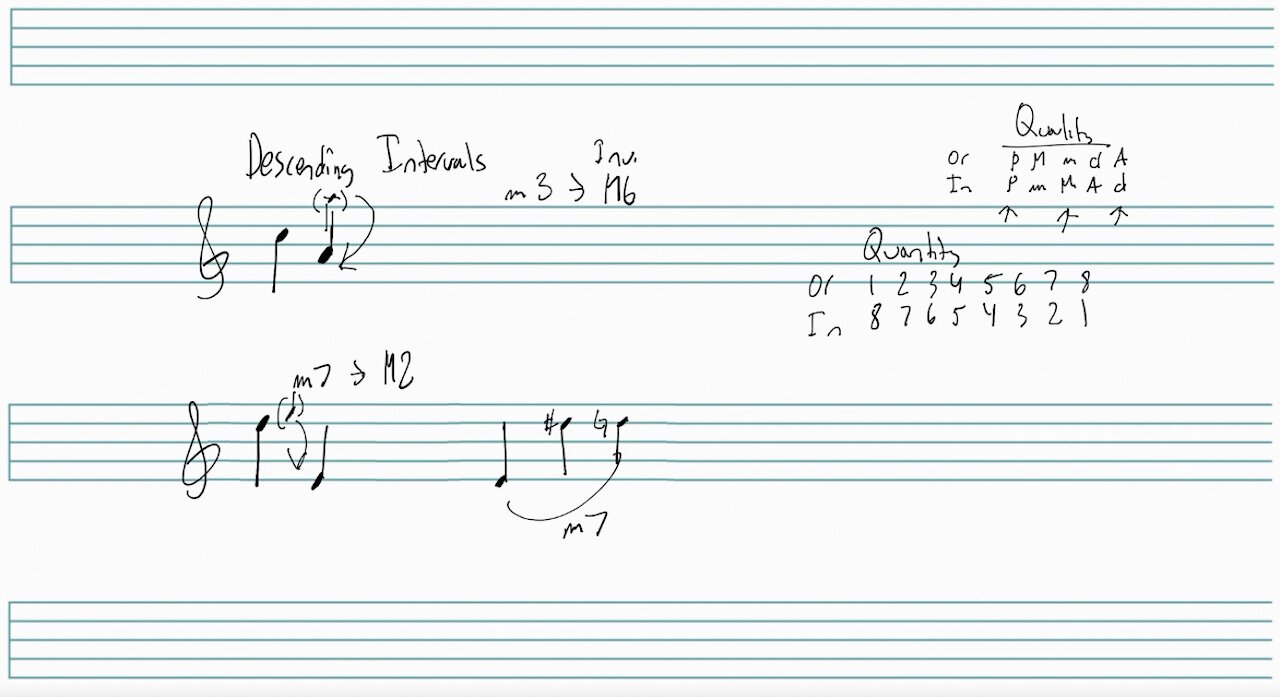 Descending Intervals
Inv.
m3 → M6
Quality
Or P M m d A
In P m M A d
Quantity
Or 1 2 3 4 5 6 7 8
In 8 7 6 5 4 3 2 1
m7 → M2
m7